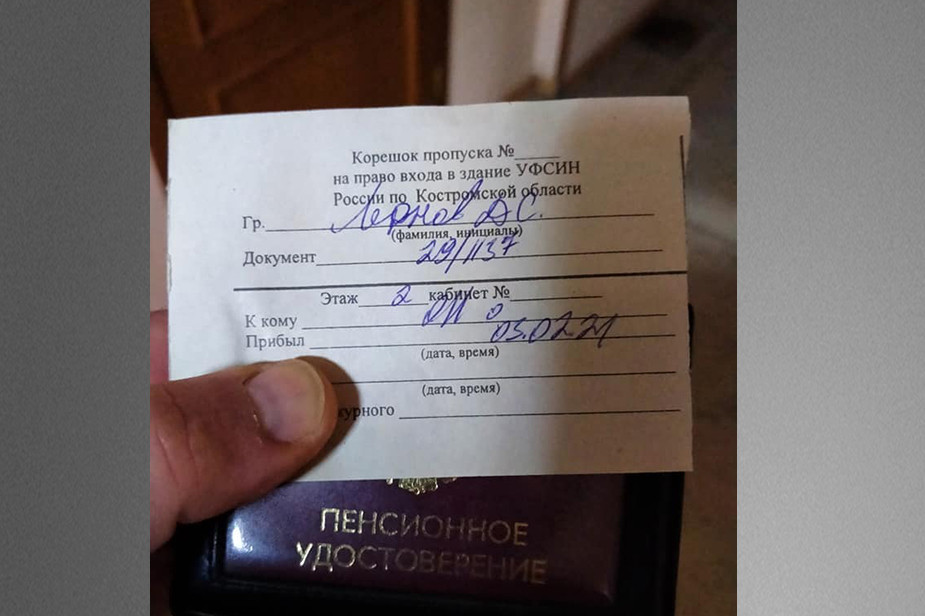 Корешок пропуска №
на право входа в здание УФСИН
России по Костромской области
Гр. Лернов Д С.
(фамилия, инициалы)
Документ 29/1137
Этаж 2 кабинет №
К кому
Прибыл 05.02.21
(дата, время)
(дата, время)
журного
ПЕНСИОННОЕ
УДОСТОВЕРЕНИЕ